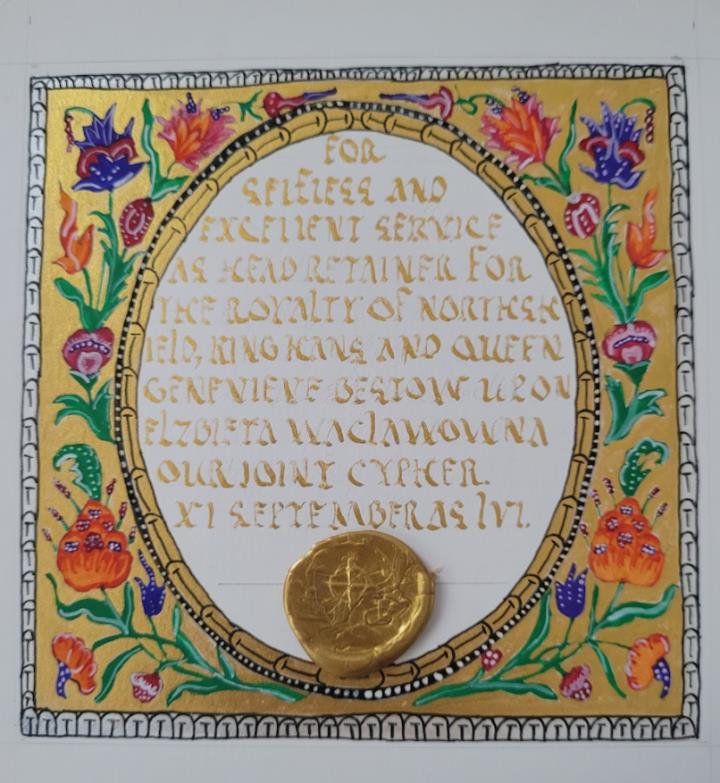 FOR
SELFLESS AND
EXCELLENT SERVICE
AS HEAD RETAINER FOR
THE ROYALTY OF NORTHSH
IELD, KING HANS AND QUEEN
GENEVIEVE BESTOW UPON
ELZBIETA WACLAWOWNA
OUR JOINT CYPHER.
XI SEPTEMBER AS LVI.